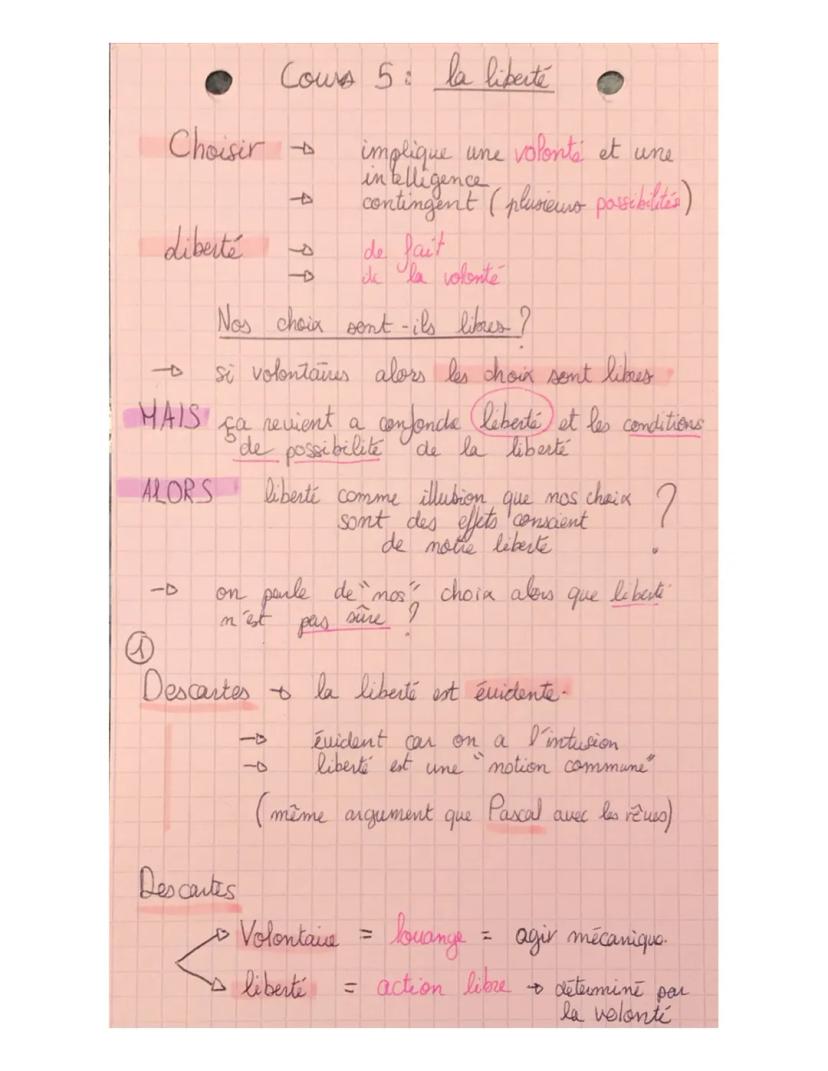 Cours 5 : la liberté
Choisir → implique une volonté et une
intelligence
→ contingent (plusieurs possibilités)
liberté → de fait
→ de la volonté
Nos choix sont-ils libres ?
→ si volontaires alors les choix sont libres
MAIS ça revient a confondre liberté et les conditions
de possibilité de la liberté
ALORS liberté comme illusion que nos choix ?
sont des effets conscient
de notre liberté
→ on parle de "nos" choix alors que liberté
n'est pas sûre ?
①
Descartes → la liberté est évidente.
→ évident car on a l'intusion
→ liberté est une "notion commune"
(même argument que Pascal avec les rêves)
Descartes
Volontaire = louange = agir mécanique.
liberté = action libre → déterminé par
la volonté